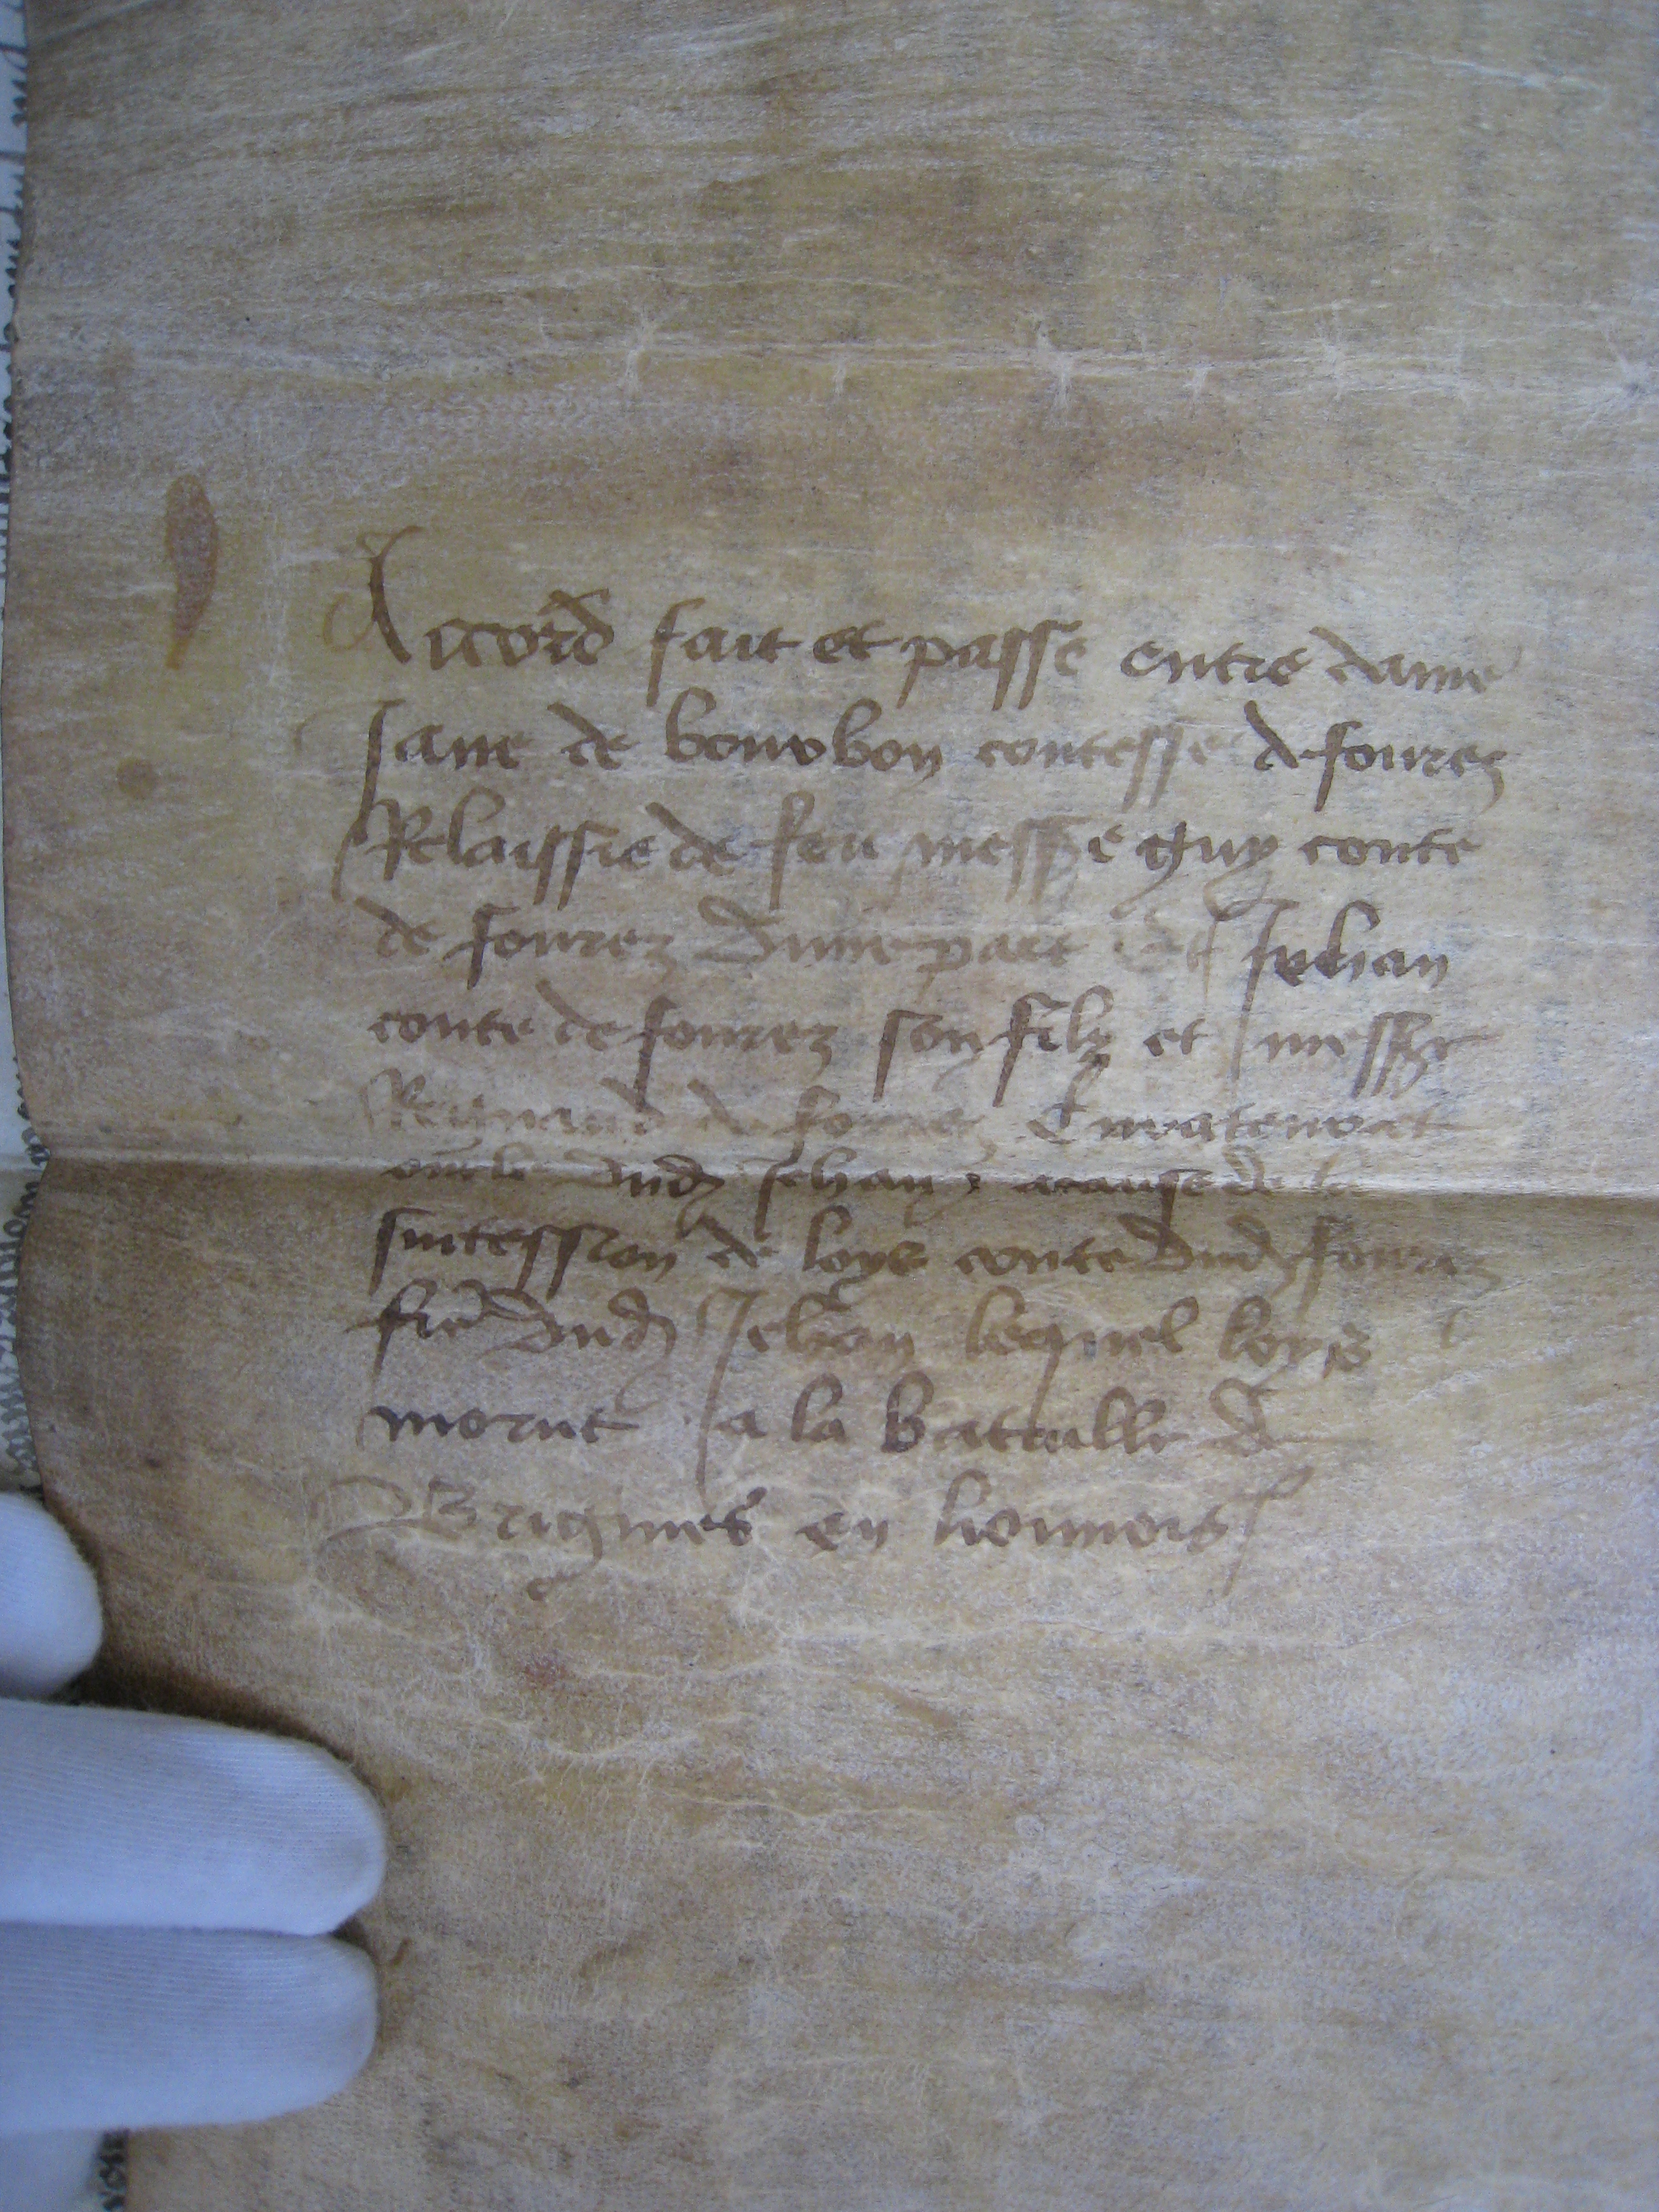 Accord fait et passe entre dame
Jane de bourbon contesse de fourez
Relaissie de feu messre guy conte
de fourez dune part Et Jehan
conte de fourez son filz et messr
Regnaud de forez Curateur
oncle dud Jehan a cause de la
succession de loys conte dud fourez
fre dud Jehan lequel loys
morut a la bataille de
Brignies en lionnois